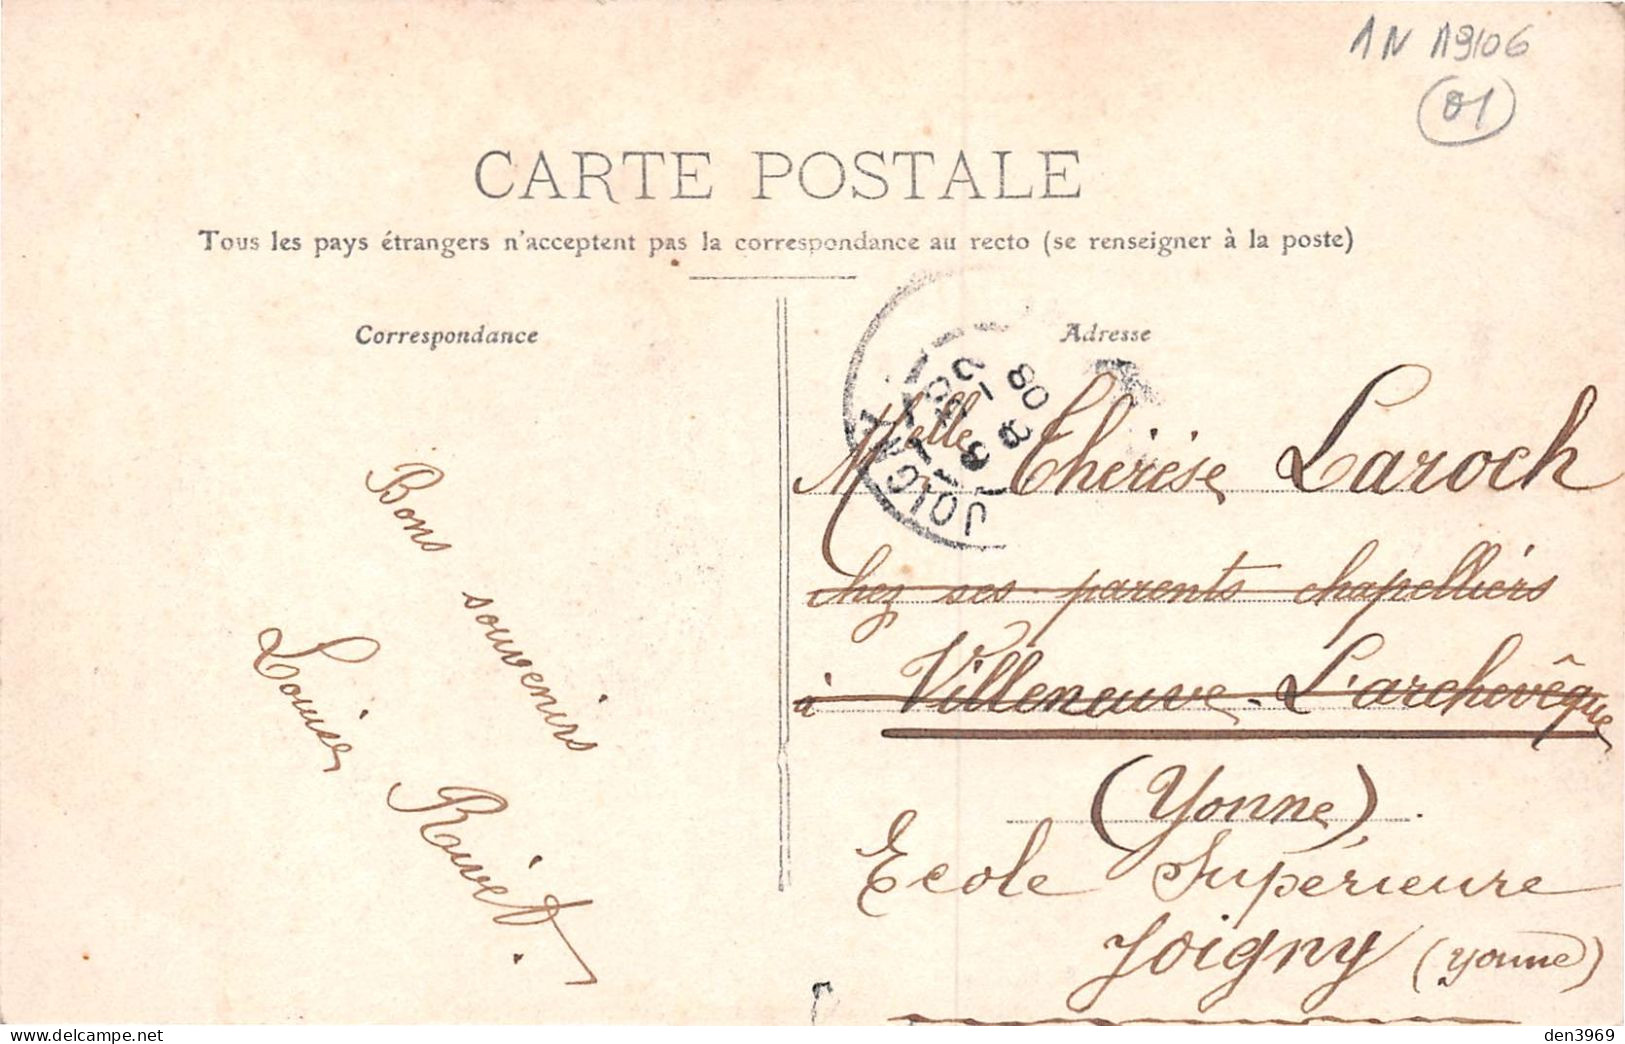 1N 19106
01
CARTE POSTALE
Tous les pays étrangers n'acceptent pas la correspondance au recto (se renseigner à la poste)
Correspondance
Bons souvenirs
Louise Rivet.
Adresse
JOIGNY
08
Melle Thérèse Laroch
chez ses parents chapelliers
à Villeneuve-L'archevêque
(Yonne).
Ecole Supérieure
Joigny (Yonne)
den3969